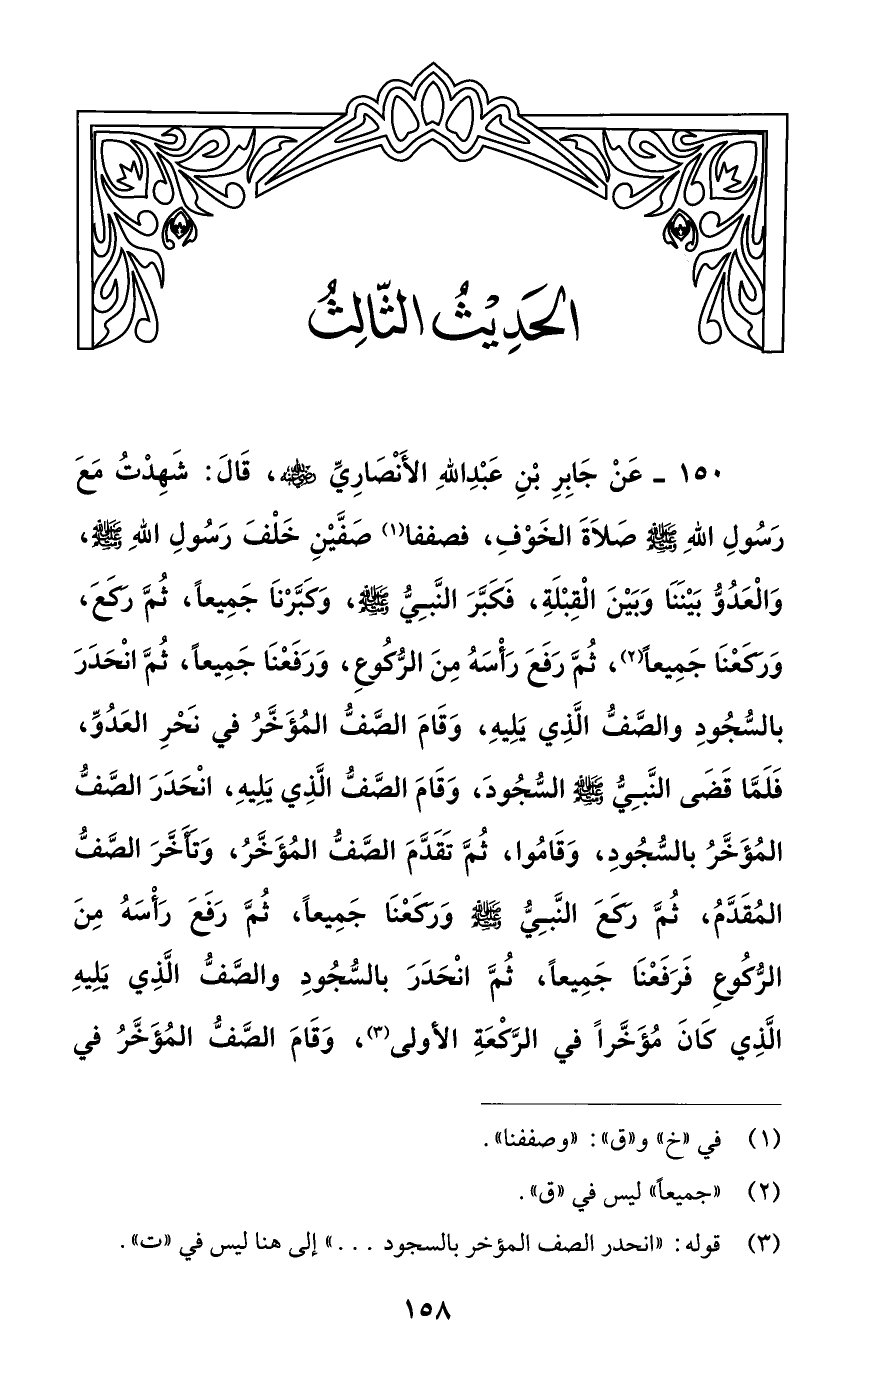 الحَدِيْثُ الثَّالِثُ
١٥٠ ـ عَنْ جَابِرِ بْنِ عَبْدِاللهِ الأَنْصَارِيِّ ﵁، قَالَ: شَهِدْتُ مَعَ
رَسُولِ اللهِ ﷺ صَلاَةَ الخَوْفِ، فصففا(١) صَفَّيْنِ خَلْفَ رَسُولِ اللهِ ﷺ،
وَالْعَدُوُّ بَيْنَنَا وَبَيْنَ الْقِبْلَةِ، فَكَبَّرَ النَّبِيُّ ﷺ، وَكَبَّرْنَا جَمِيعاً، ثُمَّ رَكَعَ،
وَرَكَعْنَا جَمِيعاً(٢)، ثُمَّ رَفَعَ رَأْسَهُ مِنَ الرُّكُوعِ، وَرَفَعْنَا جَمِيعاً، ثُمَّ انْحَدَرَ
بالسُّجُودِ والصَّفُّ الَّذِي يَلِيهِ، وَقَامَ الصَّفُّ المُؤَخَّرُ في نَحْرِ العَدُوِّ،
فَلَمَّا قَضَى النَّبِيُّ ﷺ السُّجُودَ، وَقَامَ الصَّفُّ الَّذِي يَلِيهِ، انْحَدَرَ الصَّفُّ
المُؤَخَّرُ بالسُّجُودِ، وَقَامُوا، ثُمَّ تَقَدَّمَ الصَّفُّ المُؤَخَّرُ، وَتَأَخَّرَ الصَّفُّ
المُقَدَّمُ، ثُمَّ رَكَعَ النَّبِيُّ ﷺ وَرَكَعْنَا جَمِيعاً، ثُمَّ رَفَعَ رَأْسَهُ مِنَ
الرُّكُوعِ فَرَفَعْنَا جَمِيعاً، ثُمَّ انْحَدَرَ بالسُّجُودِ والصَّفُّ الَّذِي يَلِيهِ
الَّذِي كَانَ مُؤَخَّراً في الرَّكْعَةِ الأولى(٣)، وَقَامَ الصَّفُّ المُؤَخَّرُ في
(١) في «خ» و«ق»: «وصففنا».
(٢) «جميعاً» ليس في «ق».
(٣) قوله: «انحدر الصف المؤخر بالسجود ...» إلى هنا ليس في «ت».
١٥٨